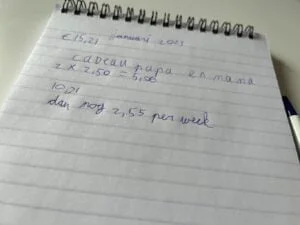 €15,21 januari 2013
cadeau papa en mama
2 x 2,50 = 5,00
10,21
dan nog 2,55 per week